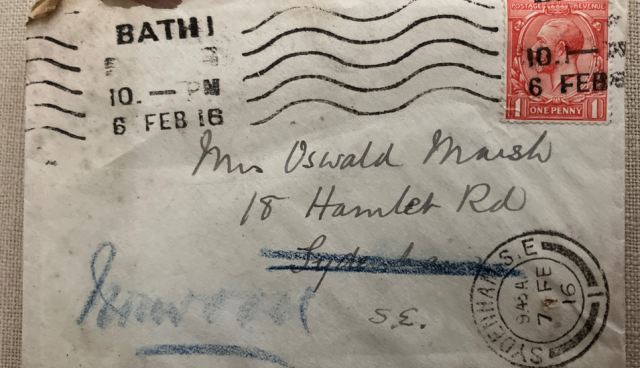 BATH 1
10. — PM
6 FEB 16
POSTAGE REVENUE
10.
6 FEB
1 ONE PENNY 1
Mrs Oswald Marsh
18 Hamlet Rd
Sydenham
Norwood
S.E.
SYDENHAM S.E
7 FE
16